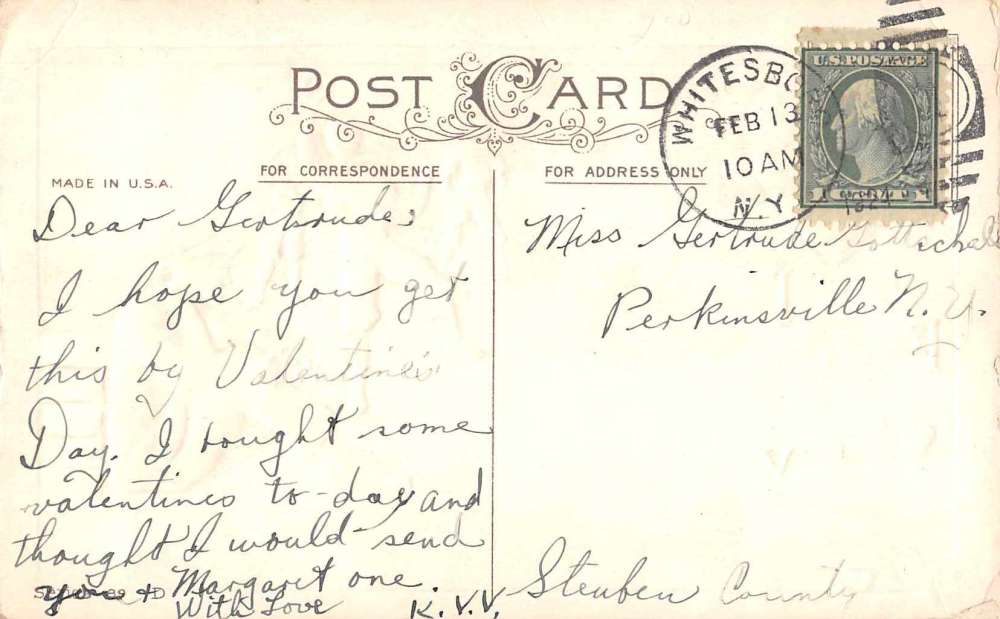 POST CARD
MADE IN U.S.A.
FOR CORRESPONDENCE
FOR ADDRESS ONLY
WHITESBO
FEB 13
10 AM
N.Y.
U.S. POSTAGE
1 1
Dear Gertrude:
I hope you get
this by Valentine's
Day. I bought some
valentines to-day and
thought I would send
you + Margaret one.
With Love
K.V.V.
Miss Gertrude
Perkinsville N.Y.
Steuben County